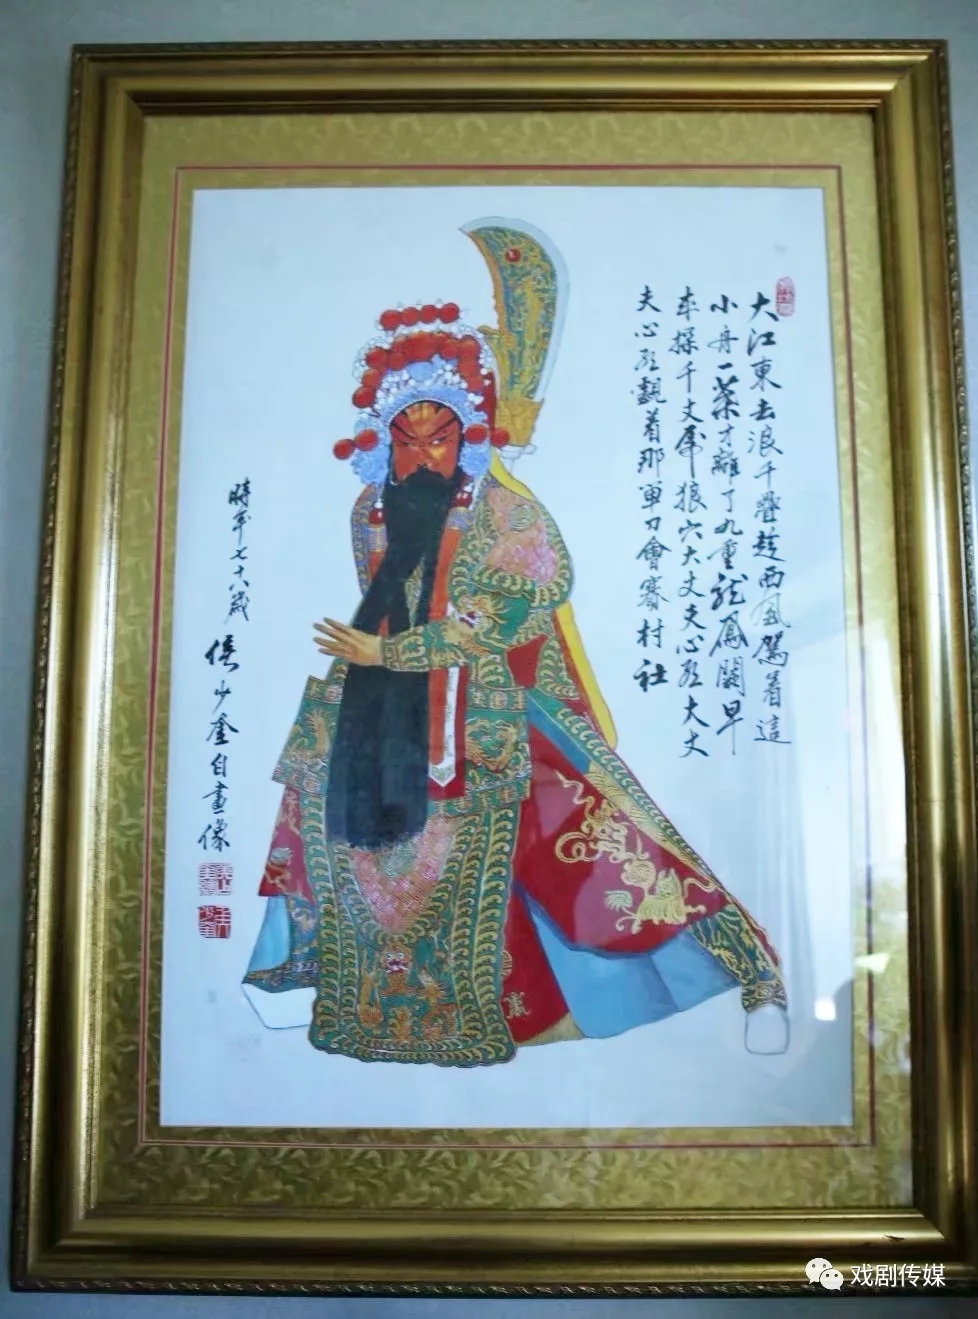 大江東去浪千疊趁西風駕着這
小舟一葉才離了九重龍鳳闕早
來探千丈虎狼穴大丈夫心烈大丈
夫心烈覷着那單刀會賽村社
時年七十八歲
侯少奎自畫像
戏剧传媒